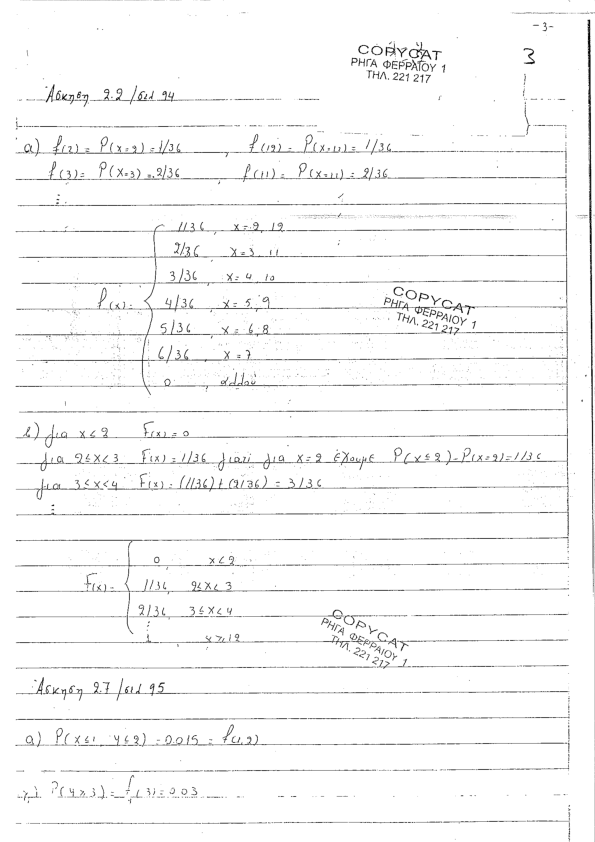 -3-
COPYCAT
ΡΗΓΑ ΦΕΡΡΑΙΟΥ 1
ΤΗΛ. 221 217
3
Άσκηση 2.2 / σελ 94
α) f(2) = P(x=2) = 1/36 , f(12) = P(x=12) = 1/36
f(3) = P(x=3) = 2/36 f(11) = P(x=11) = 2/36
⋮
1/36 , x=2, 12
2/36 , x=3, 11
3/36 , x=4, 10
f(x) = 4/36 , x=5, 9
5/36 , x=6, 8
6/36 , x=7
0 , αλλού
COPYCAT
ΡΗΓΑ ΦΕΡΡΑΙΟΥ 1
ΤΗΛ. 221 217
β) για x<2 F(x) = 0
για 2≤x<3 F(x) = 1/36 γιατί για x=2 έχουμε P(x≤2) = P(x=2) = 1/36
για 3≤x<4 F(x) = (1/36) + (2/36) = 3/36
⋮
0 , x<2
F(x) = 1/36, 2≤x<3
2/36, 3≤x<4
⋮
1 x≥12
COPYCAT
ΡΗΓΑ ΦΕΡΡΑΙΟΥ 1
ΤΗΛ. 221 217
Άσκηση 2.7 / σελ 95
α) P(x≤1, y≤2) = 0.015 = f(1,2)
γ) P(y>3) = f(3) = 0.03